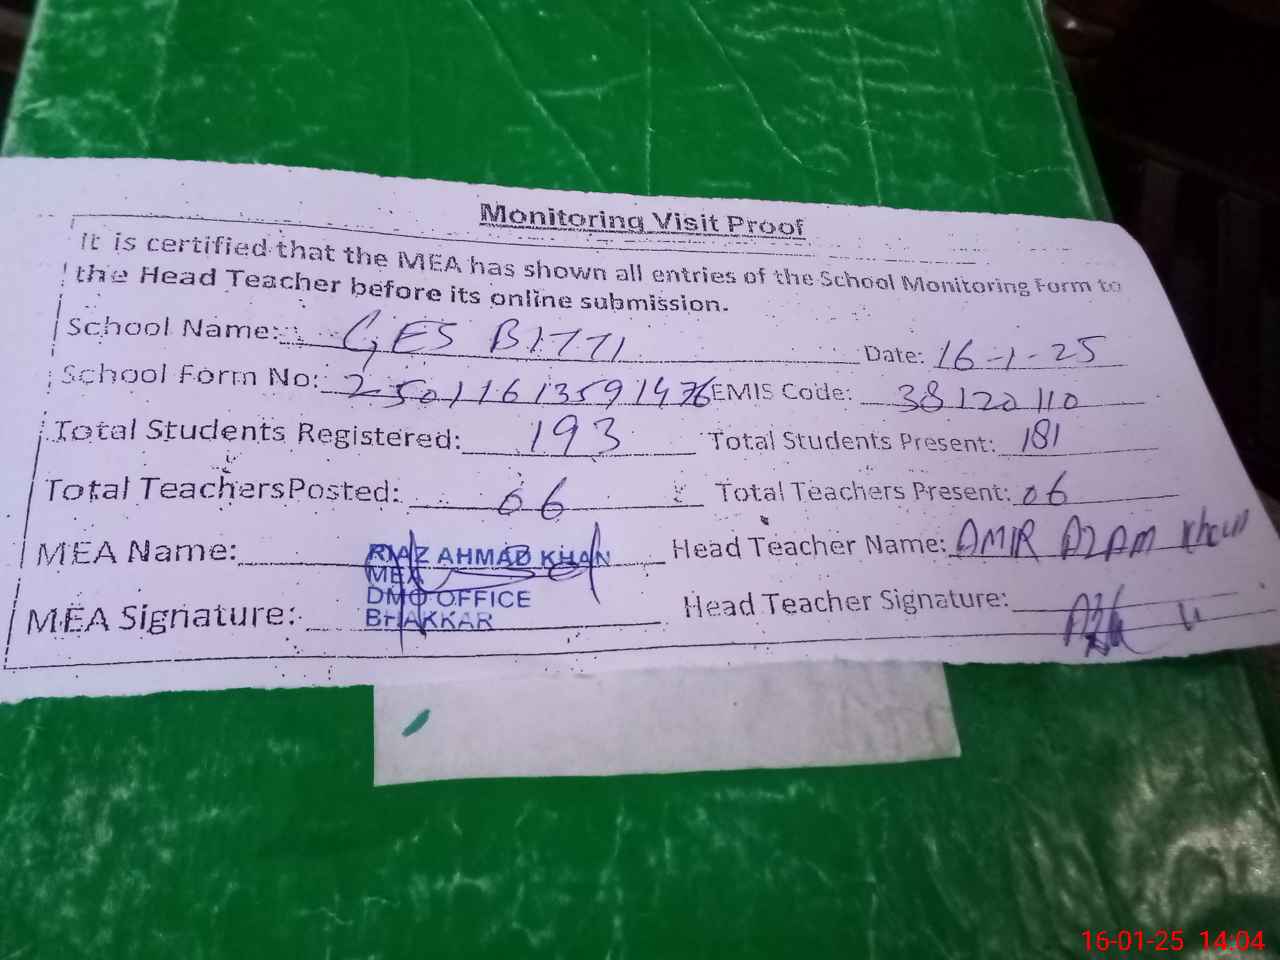 Monitoring Visit Proof
It is certified that the MEA has shown all entries of the School Monitoring Form to
the Head Teacher before its online submission.
School Name: GES BITTI Date: 16-1-25
School Form No: 25011613591476 EMIS Code: 38120110
Total Students Registered: 193 Total Students Present: 181
Total Teachers Posted: 06 Total Teachers Present: 06
MEA Name: RIAZ AHMAD KHAN Head Teacher Name: AMIR AZAM Khan
MEA
DMO OFFICE
MEA Signature: BHAKKAR Head Teacher Signature:
16-01-25 14:04